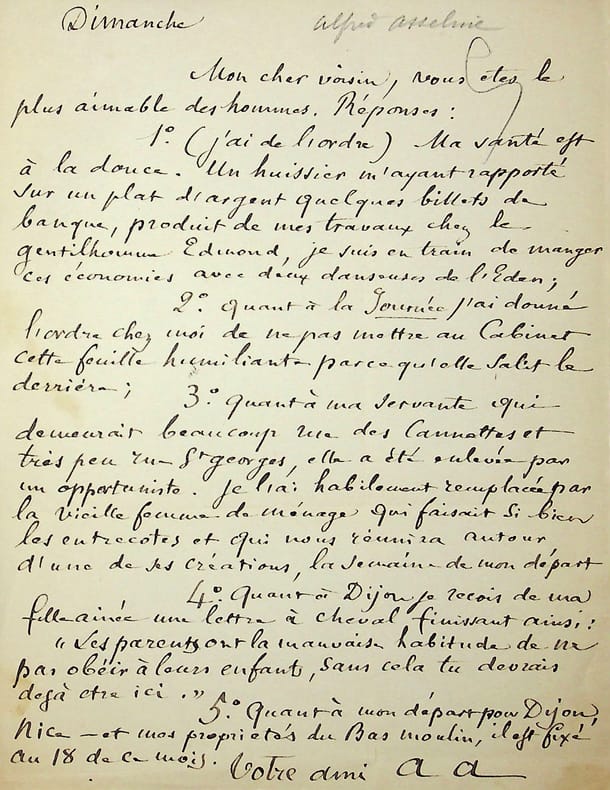 Dimanche
alfred asseline
Mon cher voisin, vous êtes le
plus aimable des hommes. Réponses :
1° (j'ai de l'ordre) Ma santé est
à la douce. Un huissier m'ayant rapporté
sur un plat d'argent quelques billets de
banque, produit de mes travaux chez le
gentilhomme Edmond, je suis en train de manger
ces économies avec deux danseuses de l'Eden ;
2° quant à la Journée j'ai donné
l'ordre chez moi de ne pas mettre au Cabinet
cette feuille humiliante parce qu'elle salit le
derrière ; 3° quant à ma servante qui
demeurait beaucoup rue des Cannettes et
très peu rue St georges, elle a été enlevée par
un opportuniste. je l'ai habilement remplacée par
la vieille femme de ménage qui faisait si bien
les entrecotes et qui nous réunira autour
d'une de ses créations, la semaine de mon départ
4° Quant à Dijon je reçois de ma
fille ainée une lettre à cheval finissant ainsi :
"Les parents ont la mauvaise habitude de ne
pas obéir à leurs enfant, sans cela tu devrais
dejà etre ici."
5° Quant à mon départ pour Dijon,
Nice — et mes propriétés du Bas moulin, il est fixé
au 18 de ce mois.
Votre ami a a